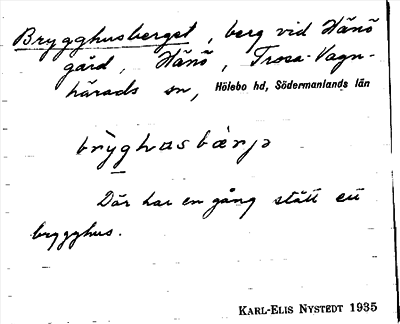 Brygghusberget, berg vid Hånö
gård, Hånö, Trosa-Vagn-
härads sn, Hölebo hd, Södermanlands län
bry̳ghusbærjə
Där har en gång stått ett
brygghus.
KARL-ELIS NYSTEDT 1935